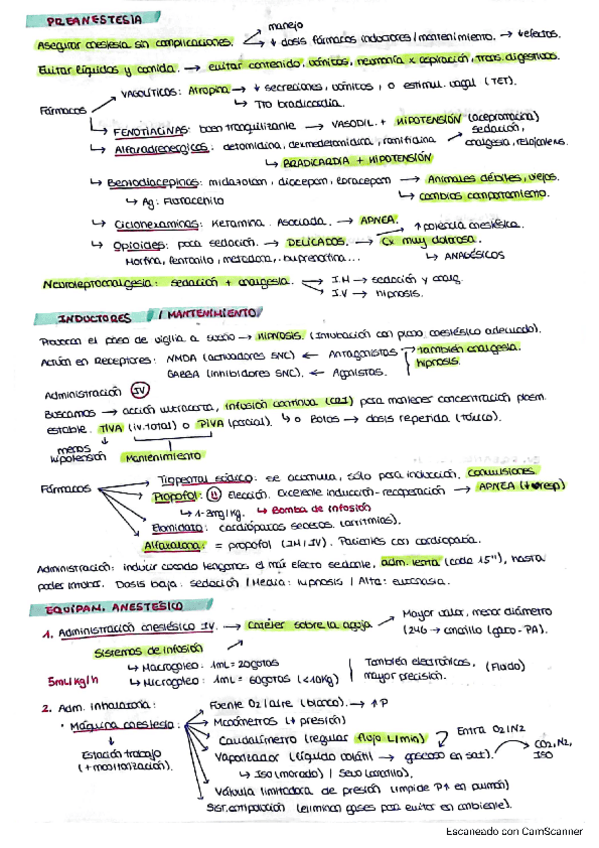 PREANESTESIA
manejo
Asegurar anestesia sin complicaciones. ↓ dosis fármacos inductores/mantenimiento. → ↓efectos.
Evitar líquidos y comida. → evitar contenido, vómitos, neumonía x aspiración, trans. digestivos.
VAGOLÍTICOS: Atropina → ↓ secreciones, vómitos, o estimul. vagal (TET).
Fármacos ↳ Tto bradicardia.
↳ FENOTIACINAS: buen tranquilizante → VASODIL. + HIPOTENSIÓN (acepromacina)
↳ Alfaadrenergicos: detomidina, dexmedetomidina, romifidina sedación, analgesia, relajantes.
↳ BRADICARDIA + HIPOTENSIÓN
↳ Benzodiacepinas: midazolam, diacepam, loracepam → Animales débiles, viejos.
↳ Ag: Flumacenilo ↳ cambios comportamiento.
↳ Ciclohexaminas: Ketamina. Asociada. → APNEA. ↑ potencia anestésica.
↳ Opioides: poca sedación. → DELICADOS. → Cx muy dolorosa.
Morfina, fentanilo, metadona, buprenorfina... ↳ ANALGÉSICOS
Neuroleptoanalgesia: sedación + analgesia. I.M → sedación y analg.
I.V → hipnosis.
INDUCTORES / MANTENIMIENTO
Provocan el paso de vigilia a sueño → HIPNOSIS. (Intubación con plano anestésico adecuado).
Actúan en Receptores: NMDA (activadores SNC) ← Antagonistas también analgesia.
GABBA (inhibidores SNC). ← Agonistas. hipnosis.
Administración IV
Buscamos → acción ultracorta, infusión continua (CRI) para mantener concentración plasm.
estable. TIVA (iv. total) o PIVA (parcial). ↳ o Bolos → dosis repetida (tóxico).
menos hipotensión
Mantenimiento
Fármacos Tiopental sódico: se acumula, sólo para inducción, convulsiones
Propofol: Elección. Excelente inducción-recuperación → APNEA (↓resp)
↳ 1-2mg/kg. ↳ Bomba de infusión
Etomidato: cardiópatas severos. (arritmias).
Alfaxalona: = propofol (IM/IV). Pacientes con cardiopatía.
Administración: inducir cuando tengamos el máx efecto sedante, adm. lenta (cada 15"), hasta
poder intubar. Dosis baja: sedación / Media: hipnosis / Alta: eutanasia.
EQUIPAM. ANESTÉSICO
1. Administración anestésico I.V. → Catéter sobre la aguja → Mayor valor, menor diámetro
(24G → amarillo (gato-PA).
Sistemas de infusión
↳ Macrogoteo: 1mL = 20gotas También electrónicos, (Fluido)
5mL/kg/h ↳ Microgoteo: 1mL = 60gotas (<10Kg) mayor precisión.
2. Adm. inhalatoria: Fuente O2/aire (blanco). → ↑P
· Máquina anestesia: Manómetros (↓ presión)
Caudalímetro (regular flujo L/min) Entra O2/N2
Estación trabajo Vaporizador (líquido volátil → gaseoso en sat). CO2, N2, ISO
(+ monitorización). ↳ Iso (morado) / Sevo (amarillo).
Válvula limitadora de presión (impide P↑ en pulmón)
Sist. anticontaminación (eliminan gases para evitar en ambiente).
Escaneado con CamScanner